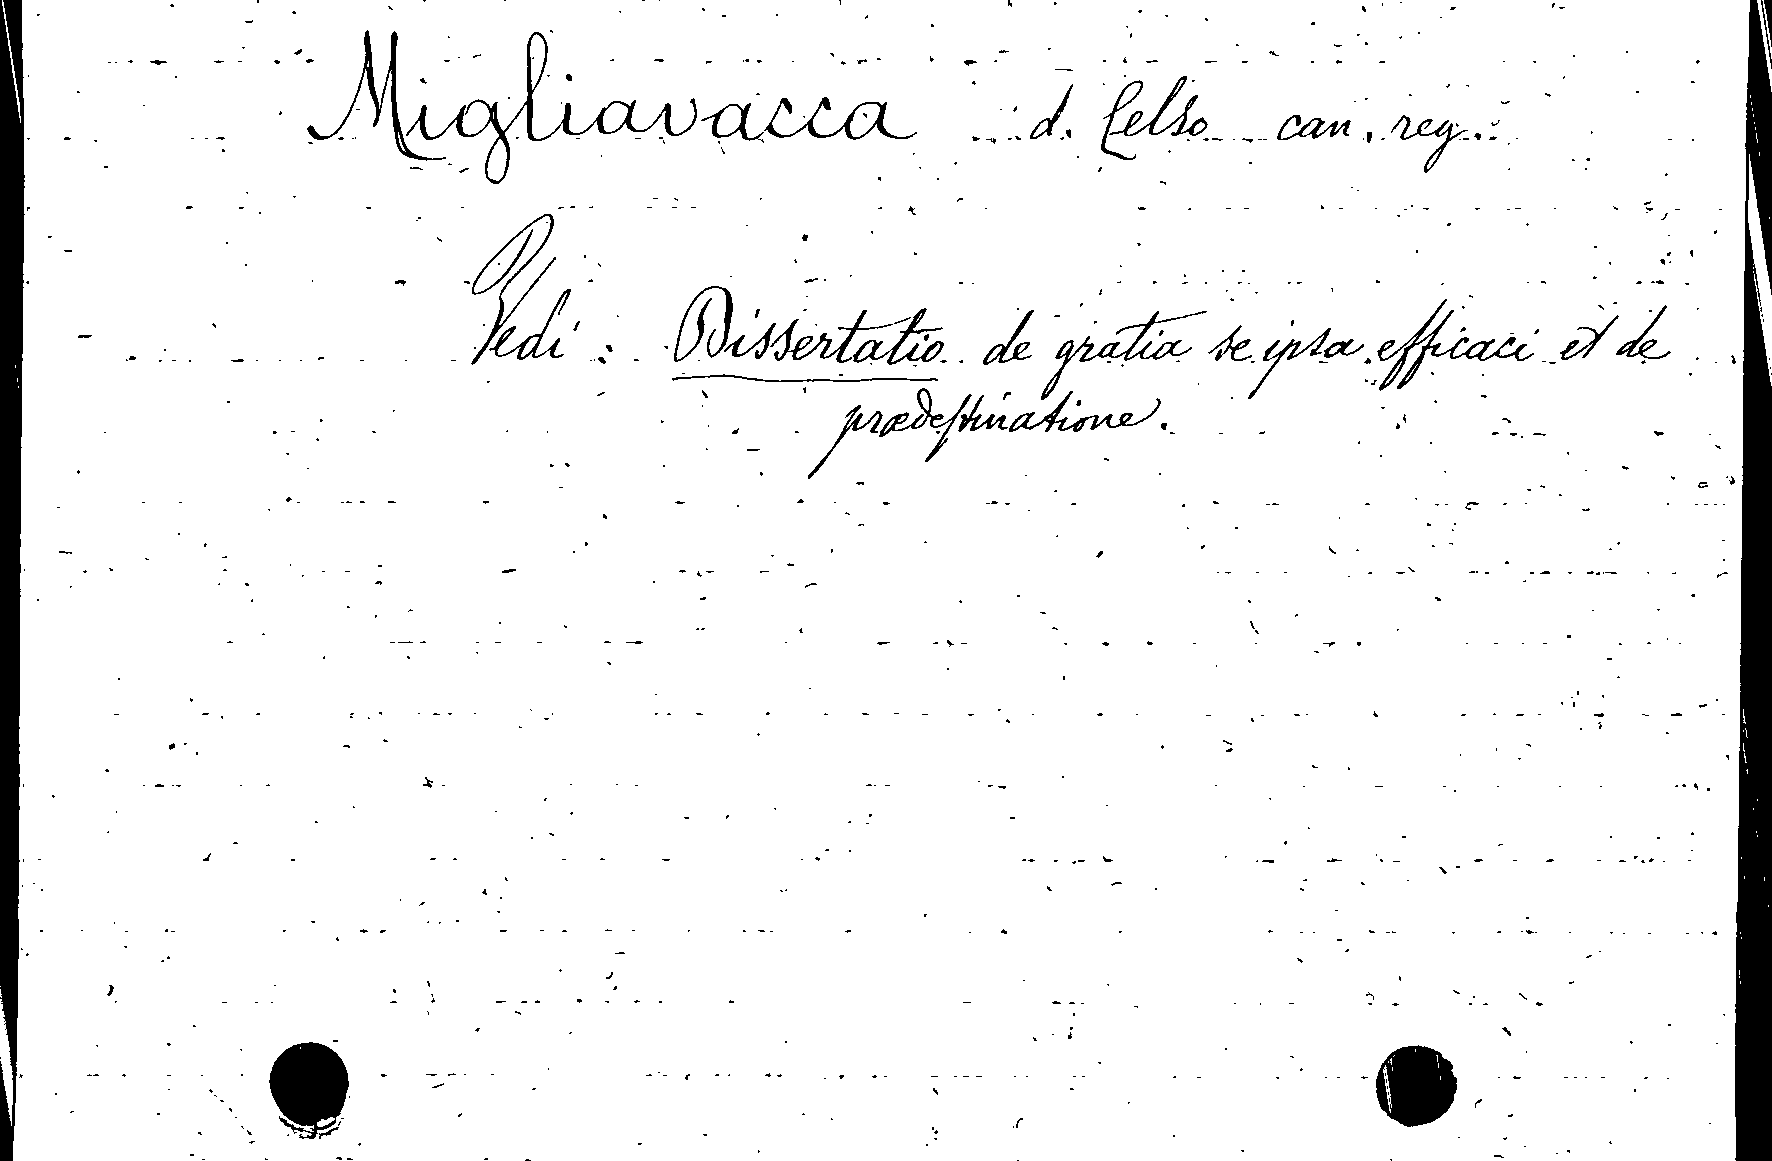 Migliavacca d. Celso can. reg.
Vedi: Dissertatio de gratia se ipsa efficaci et de
prædestinatione.